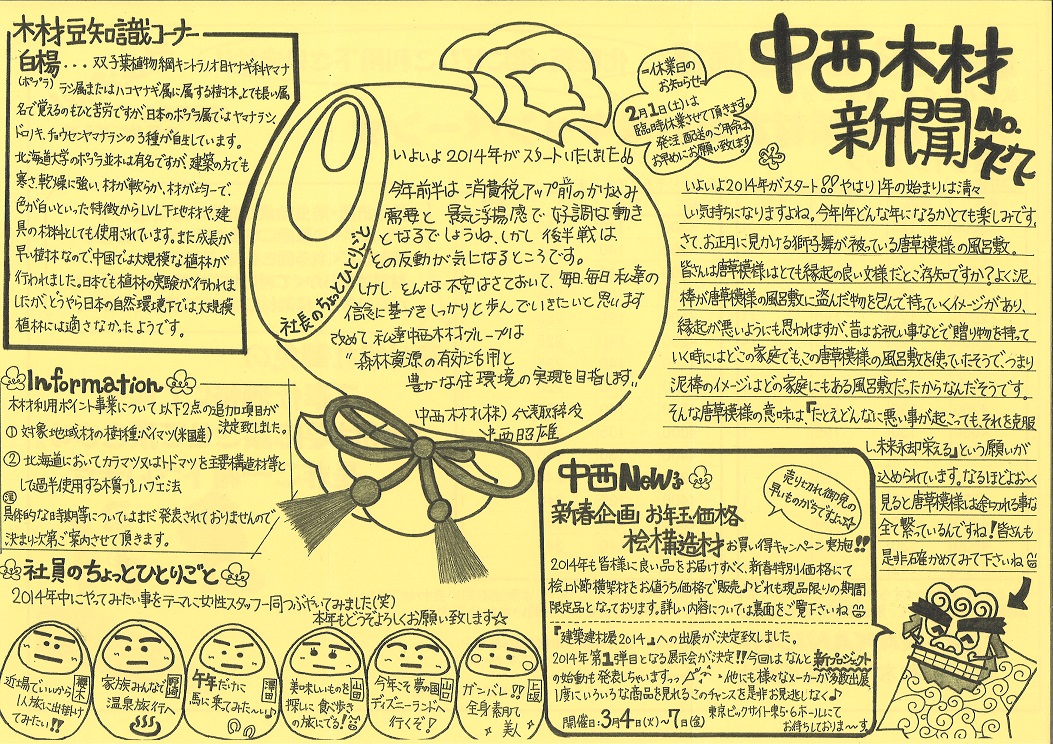 中西木材
新聞
No.
木材豆知識コーナー
白楊...双子葉植物綱キントラノオ目ヤナギ科ヤマナ
(ポプラ)
ラシ属またはハコヤナギ属に属する樹木。とても長い属
名で覚えるのもひと苦労ですが、日本のポプラ属ではヤマナラシ、
ドロノキ、チョウセンヤマナラシの3種が自生しています。
北海道大学のポプラ並木は有名ですが、建築の方でも
寒さ、乾燥に強い、材が軟らか、材がメジャーで、
色が白いといった特徴からLVL下地材や、建
具の材料としても使用されています。また成長が
早い樹木なので、中国では大規模な植林が
行われました。日本でも植林の実験が行われま
したが、どうやら日本の自然環境下では大規模
植林には適さなかったようです。
=休業日の
お知らせ=
2月1日(土)は
臨時休業させて頂きます。
発注、配送のご用命は
お早めにお願い致します。
いよいよ2014年がスタートいたしました
今年前半は消費税アップ前のかなりの
需要と景気浮揚感で好調な動き
となるでしょうね、しかし後半戦は、
その反動が気になるところです。
しかしそんな不安はさておいて、毎日、毎日私達の
信念に基づきしっかりと歩んでいきたいと思います
改めて私達中西木材グループは
"森林資源の有効活用と
豊かな住環境の実現を目指します"
中西木材(株)代表取締役
中西昭雄
社長のちょっとひとりごと
いよいよ2014年がスタート!!やはり1年の始まりは清々
しい気持ちになりますよね。今年1年どんな年になるかとても楽しみです。
さて、お正月に見かける獅子舞が被っている唐草模様の風呂敷。
皆さんは唐草模様はとても縁起の良い文様だとご存知ですか?よく泥
棒が唐草模様の風呂敷に盗んだ物を包んで持っていくイメージがあり、
縁起が悪いようにも思われますが、昔はお祝い事などで贈り物を持って
いく時にはどこの家庭でもこの唐草模様の風呂敷を使っていたそうで、つまり
泥棒のイメージはどの家庭にもある風呂敷だったからなんだそうです。
そんな唐草模様の意味は、『たとえどんなに悪い事が起こっても、それを克服
し、未来永劫栄える』という願いが
込められています。なるほどよお〜く
見ると唐草模様は途切れる事なく
全て繋っているんですね!皆さんも
是非確かめてみて下さいね
Information
木材利用ポイント事業について以下2点の追加項目が
決定致しました。
① 対象地域材の樹種:ベイマツ(米国産)
② 北海道においてカラマツ又はトドマツを主要構造材等と
して過半使用する木質プレハブ工法
注
具体的な時期等についてはまだ発表されておりませんので
決まり次第ご案内させて頂きます。
社員のちょっとひとりごと
2014年中にやってみたい事をテーマに女性スタッフ一同つぶやいてみました(笑)
本年もどうぞよろしくお願い致します☆
近場でいいから
1人旅に出掛け
てみたい!!
櫻木
家族みんなで
温泉旅行へ
野崎
午年だけに
馬に乗ってみた〜い♪
澤田
美味しいものを
探しに食べ歩き
の旅にでる!
山田
今年こそ夢の国
ディズニーランドへ
行くぞ!
山口
ガンバレ!!
全身素肌
美人
上坂
中西Newsか
売り切れ御免の
早いものがちですよ☆
新春企画 お年玉価格
桧構造材お買い得キャンペーン実施!!
2014年も皆様に良い品をお届けすべく、新春特別価格にて
桧上小節構架材をお値うち価格で販売♪どれも現品限りの期間
限定品となっております。詳しい内容については裏面をご覧下さいね
『建築建材展2014』への出展が決定致しました。
2014年第1弾目となる展示会が決定!!今回はなんと新プロジェクト
の始動も発表しちゃいますっっ 他にも様々なメーカーが多数出展
1度にいろいろな商品を見れるこのチャンスを是非お見逃しなく♪
開催日:3月4日(火)〜7日(金)
東京ビックサイト東5・6ホールにて
お待ちしておりま〜す。